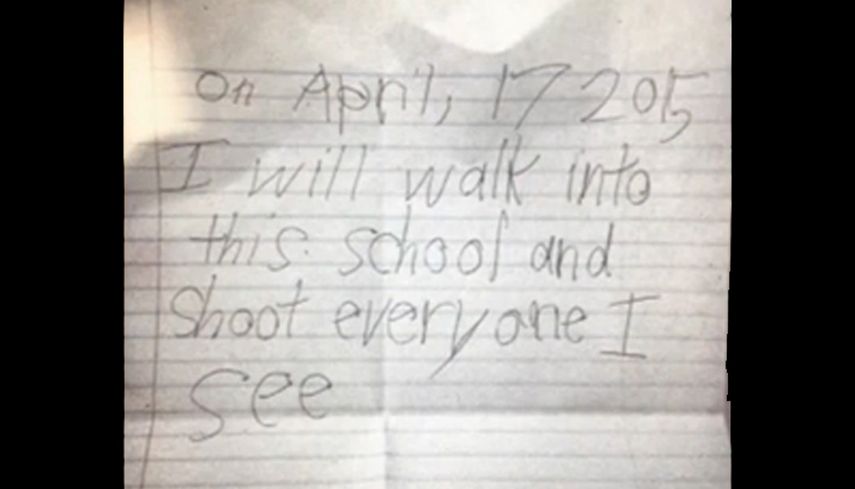 On April, 17 2015
I will walk into
this school and
Shoot everyone I
see